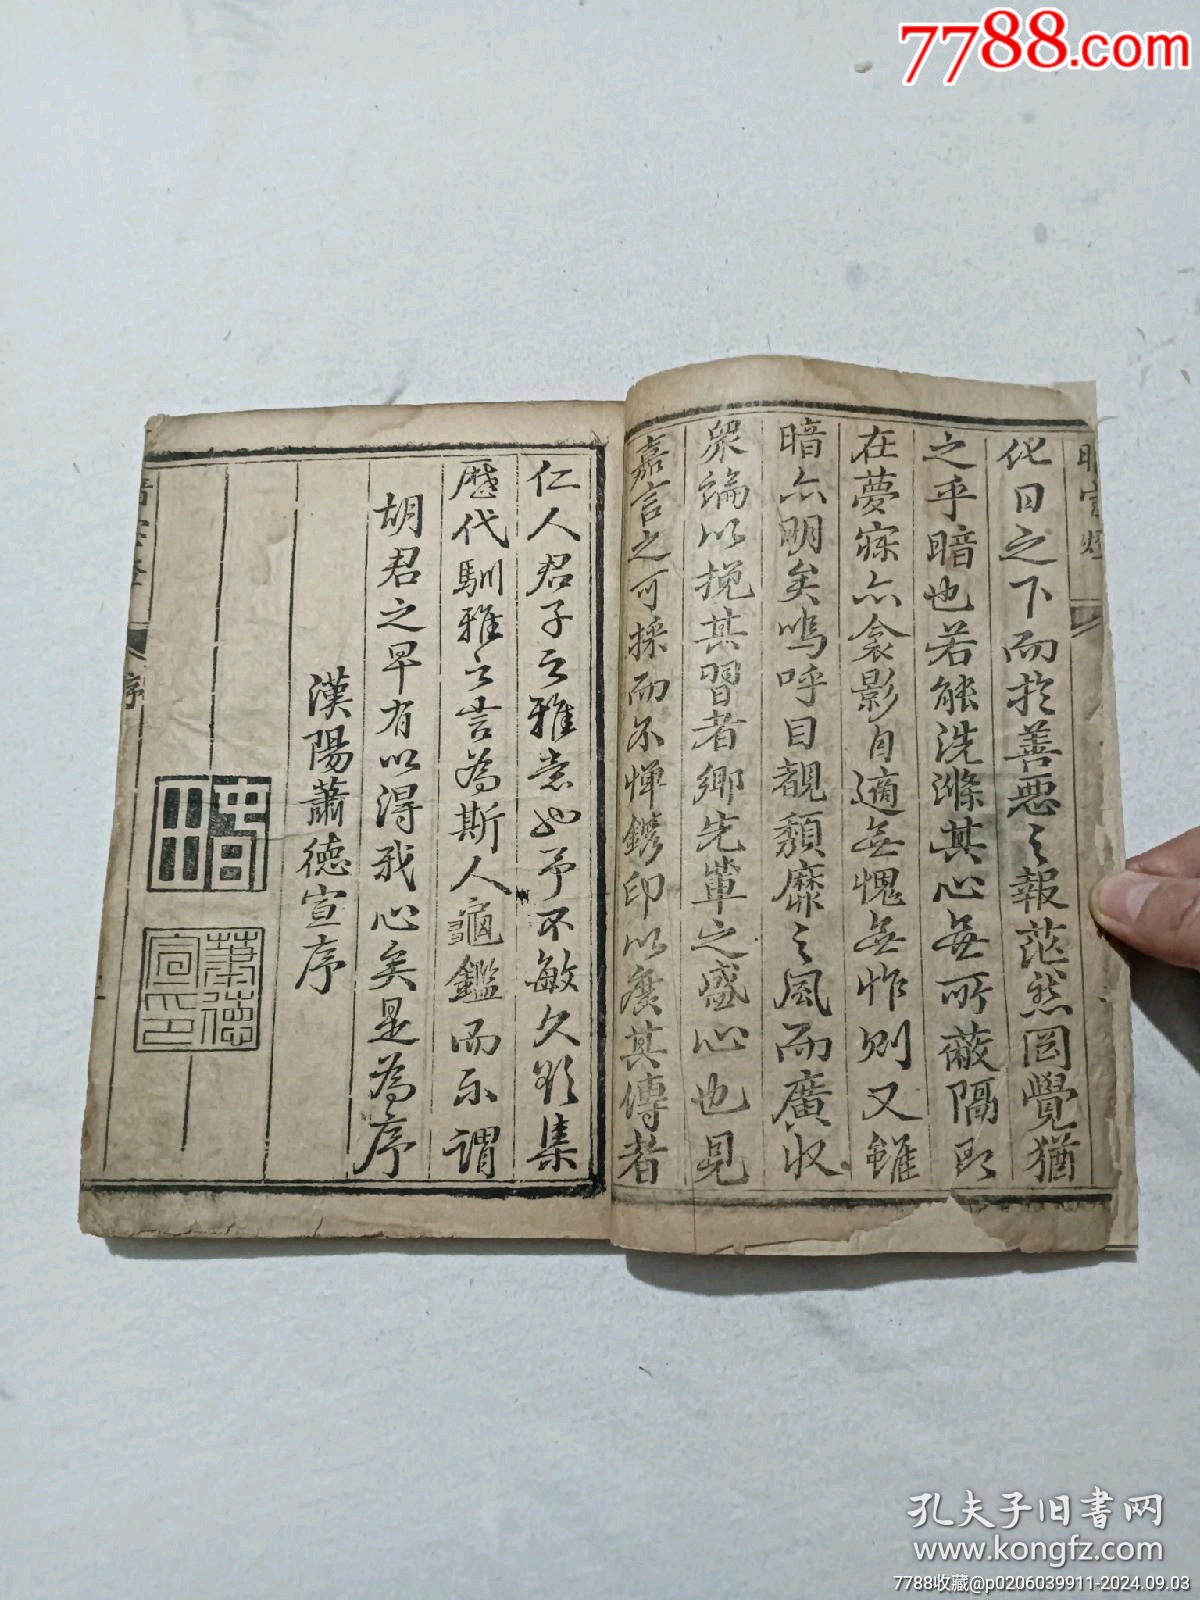 7788.com
暗室燈
化日之下而於善惡之報茫然罔覺猶
之乎暗也若能洗滌其心無所蔽隔即
在夢寐亦衾影自適無愧無怍則又雖
暗亦明矣嗚呼目覩頹靡之風而廣收
眾論以挽其習者鄉先輩之盛心也見
嘉言之可採而不憚鐫印以廣其傳者
仁人君子之雅意也予不敏久欲集
歷代馴雅之言為斯人龜鑑而不謂
胡君之早有以得我心矣是為序
漢陽蕭德宣序
蕭德宣印
序
孔夫子旧书网
www.kongfz.com
7788收藏@p0206039911-2024.09.03